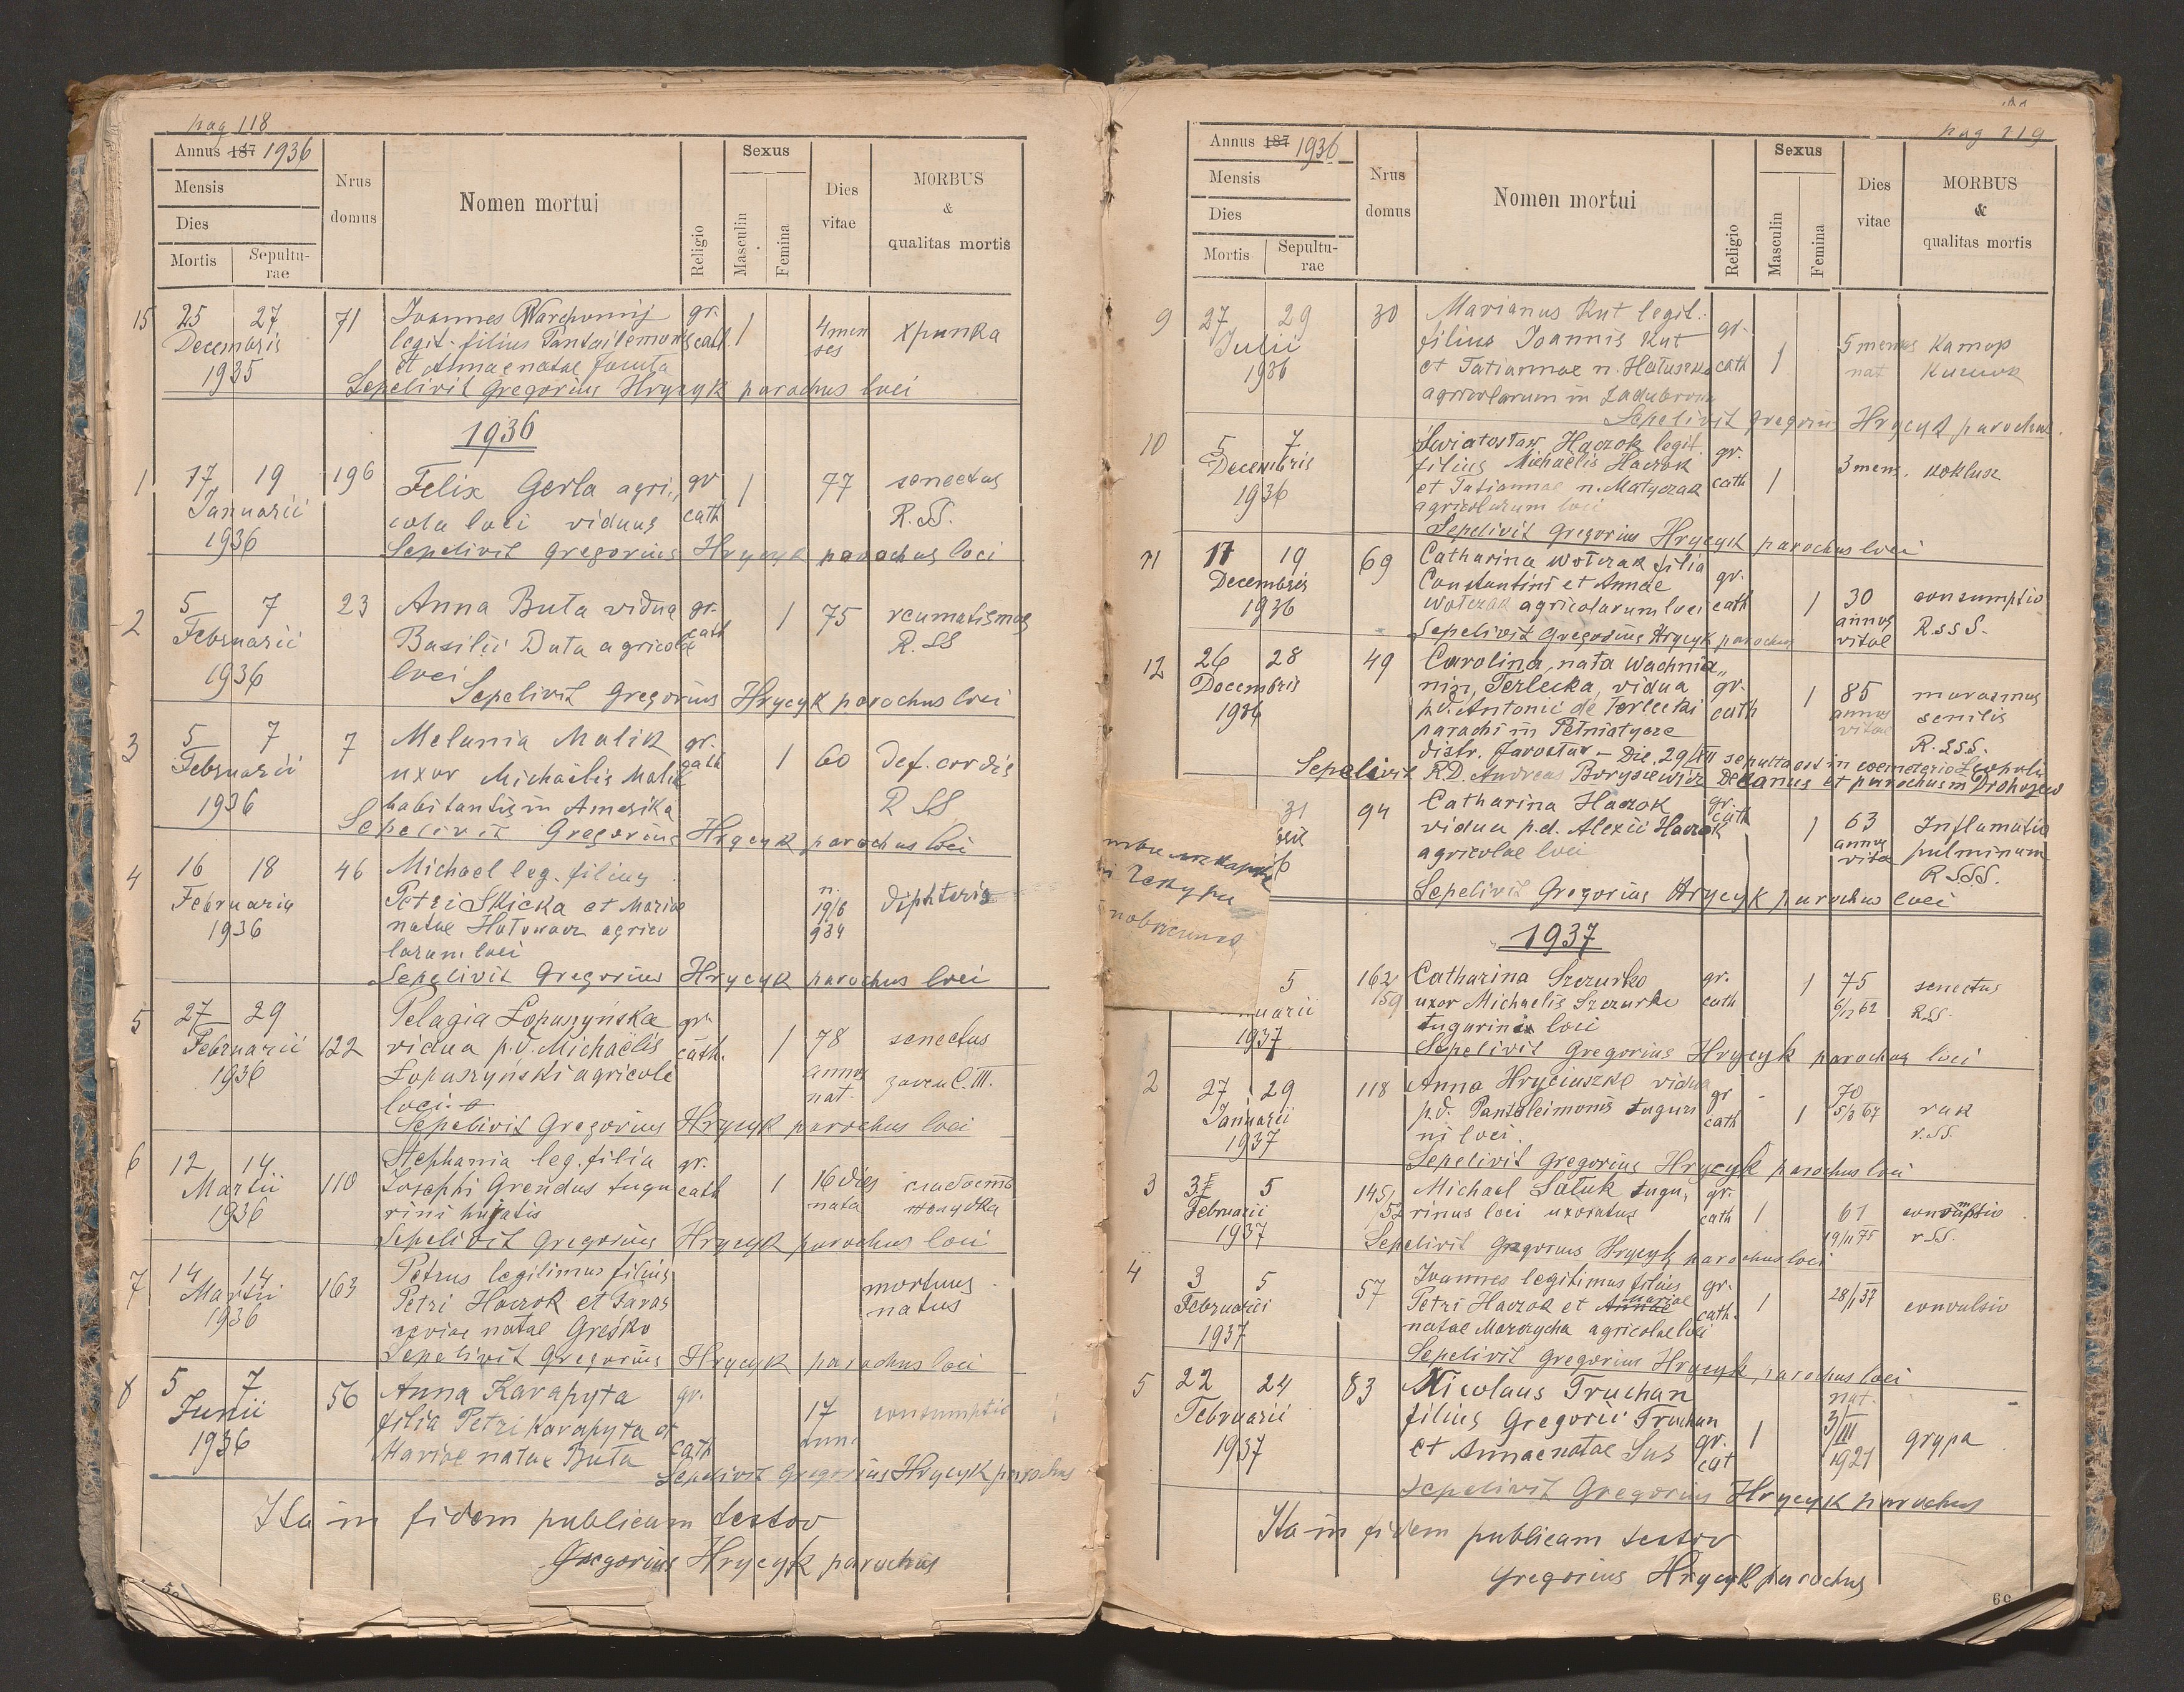 pag 118
Annus 187 1936
Mensis
Dies
Mortis
Sepultu-
rae
Nrus
domus
Nomen mortui
Religio
Sexus
Masculin
Femina
Dies
vitae
MORBUS
&
qualitas mortis
15 25 27 71 Joannes gr. 1 4 men
Decembris legit. filius cath. ses
1935 et Annae natae
Sepelivit Gregorius Hrycyk parochus loci
1936
1 17 19 196 Felix Gerla agri- gr 1 77 senectus
Januarii cola loci viduus cath R. SS.
1936 Sepelivit Gregorius Hrycyk parochus loci
2 5 7 23 Anna Buta vidua gr. 1 75 reumatismus
Februarii Basilii Buta agricolae cath R. SS
1936 loci
Sepelivit Gregorius Hrycyk parochus loci
3 5 7 7 Melania Malik gr. 1 60 Def. cordis
Februarii uxor Michaëlis Malik cath R SS
1936 habitantis in Amerika
Sepelivit Gregorius Hrycyk parochus loci
4 16 18 46 Michael leg. filius n.
Februariu Petri Skicka et Mariae 19/6 diphteris
1936 natae agrico 934
larum loci
Sepelivit Gregorius Hrycyk parochus loci
5 27 29 122 Pelagia Łopuszyńska gr. 1 78 senectus
Februarii vidua p.d. Michaëlis cath. annos
1936 Łopuszynski agricole nat.
loci.
Sepelivit Gregorius Hrycyk parochus loci
6 12 14 110 Stephania leg. filia gr. 1 16 dies слабость
Martii Josephi Grendus tugu cath nata жолудка
1936 rini hujatis
Sepelivit Gregorius Hrycyk parochus loci
7 14 14 163 Petrus legitimus filius mortuus
Martii Petri Haczok et Paras natus
1936 ceviae natae Greśko
Sepelivit Gregorius Hrycyk parochus loci
8 5 7 56 Anna Karapyta gr. 17 consumptio
Junii filia Petri Karapyta et ann.
1936 Mariae natae Buta cath
Sepelivit Gregorius Hrycyk parochus
Ita in fidem publicam testor
Gregorius Hrycyk parochus
pag 119
Annus 187 1936
Mensis
Dies
Mortis
Sepultu-
rae
Nrus
domus
Nomen mortui
Religio
Sexus
Masculin
Femina
Dies
vitae
MORBUS
&
qualitas mortis
9 27 29 30 Marianus Kut legit. gr. 1 5 menses катар
Julii filius Joannis Kut cath nat кишок
1936 et Tatiannae n. Hałuszka
agricolarum in Zadubrow
Sepelivit Gregorius Hrycyk parochus.
10 5 7 Swiatosław Haczok legit. gr. 1 3 mens. koklusz
Decembris filius Michaëlis Haczok cath
1936 et Tatiannae n. Matyczak
agricolarum loci
Sepelivit Gregorius Hrycyk parochus loci
11 17 19 69 Catharina Wołczak filia gr. 1 30 consumptio
Decembris Constantini et Annae cath annos R.SSS.
1936 Wołczak agricolarum loci vitae
Sepelivit Gregorius Hrycyk parochus
12 26 28 49 Carolina nata Wachnia- gr. 1 85 marasmus
Decembris nin, Terlecka, vidua cath annos senilis
1936 p.d. Antonii de Terlecki vitae R.SSS.
parochi in Pełniatycze
distr. Jarosław - Die 29/XII sepulta est in coemeterio Leopoli
Sepelivit R.D. Andreas Borysiewicz Decanus et parochus in Drohojew
31 94 Catharina Haczok gr. 1 63 Inflamatio
vidua p.d. Alexii Haczok cath annos pulminum
agricolae loci vitae R.SSS.
Sepelivit Gregorius Hrycyk parochus loci
1937
5 162 Catharina Szczurko gr. 1 75 senectus
uarii 159 uxor Michaelis Szczurko cath 6/12 62 R.SS.
1937 tugurinis loci
Sepelivit Gregorius Hrycyk parochus loci
2 27 29 118 Anna Hryciuszko vidua gr 1 70 rak
Januarii p.d. Pantaleimonis tuguri cath 5/8 67 r.SS.
1937 ni loci.
Sepelivit Gregorius Hrycyk parochus loci
3 3 5 145/ Michael Sałuk tugu- gr. 1 61 consumptio
Februarii 52 rinus loci uxoratus cath 19/11 75 r SS.
1937 Sepelivit Gregorius Hrycyk parochus loci
4 3 5 57 Joannes legitimus filius gr. 1 28/I 37 convulsio
Februarii Petri Haczok et Annae Mariae cath.
1937 natae Marzycha agricolae loci
Sepelivit Gregorius Hrycyk, parochus loci
5 22 24 83 Nicolaus Truchan nat.
Februarii filius Gregorii Truchan gr. 1 3/III grypa
1937 et Annae natae Sus cat 1921
Sepelivit Gregorius Hrycyk parochus
Ita in fidem publicam testor
Gregorius Hrycyk parochus